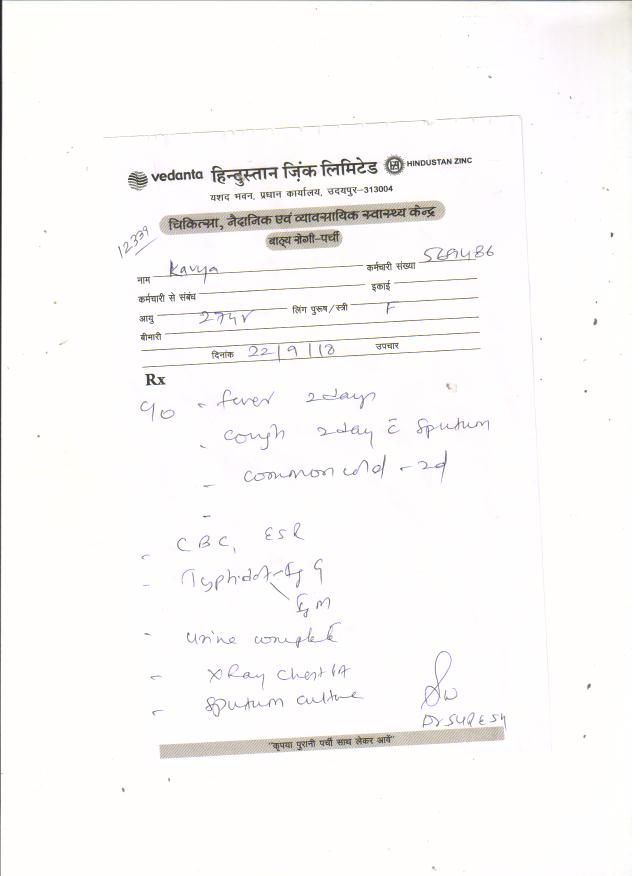 vedanta हिन्दुस्तान ज़िंक लिमिटेड HINDUSTAN ZINC
यशद भवन, प्रधान कार्यालय, उदयपुर-313004
चिकित्सा, नैदानिक एवं व्यावसायिक स्वास्थ्य केन्द्र
बाह्य रोगी-पर्ची
12339
नाम Kavya कर्मचारी संख्या
कर्मचारी से संबंध इकाई
आयु लिंग पुरूष/स्त्री F
बीमारी
दिनांक 22/9/18 उपचार
Rx
c/o - fever 2days
- cough 2day c̄ sputum
- common cold - 2d
-
- CBC, ESR
- Typhidot - Ig G
Ig M
- urine complete
- X Ray Chest PA
- Sputum culture
Dr SURESH
"कृपया पुरानी पर्ची साथ लेकर आवें"